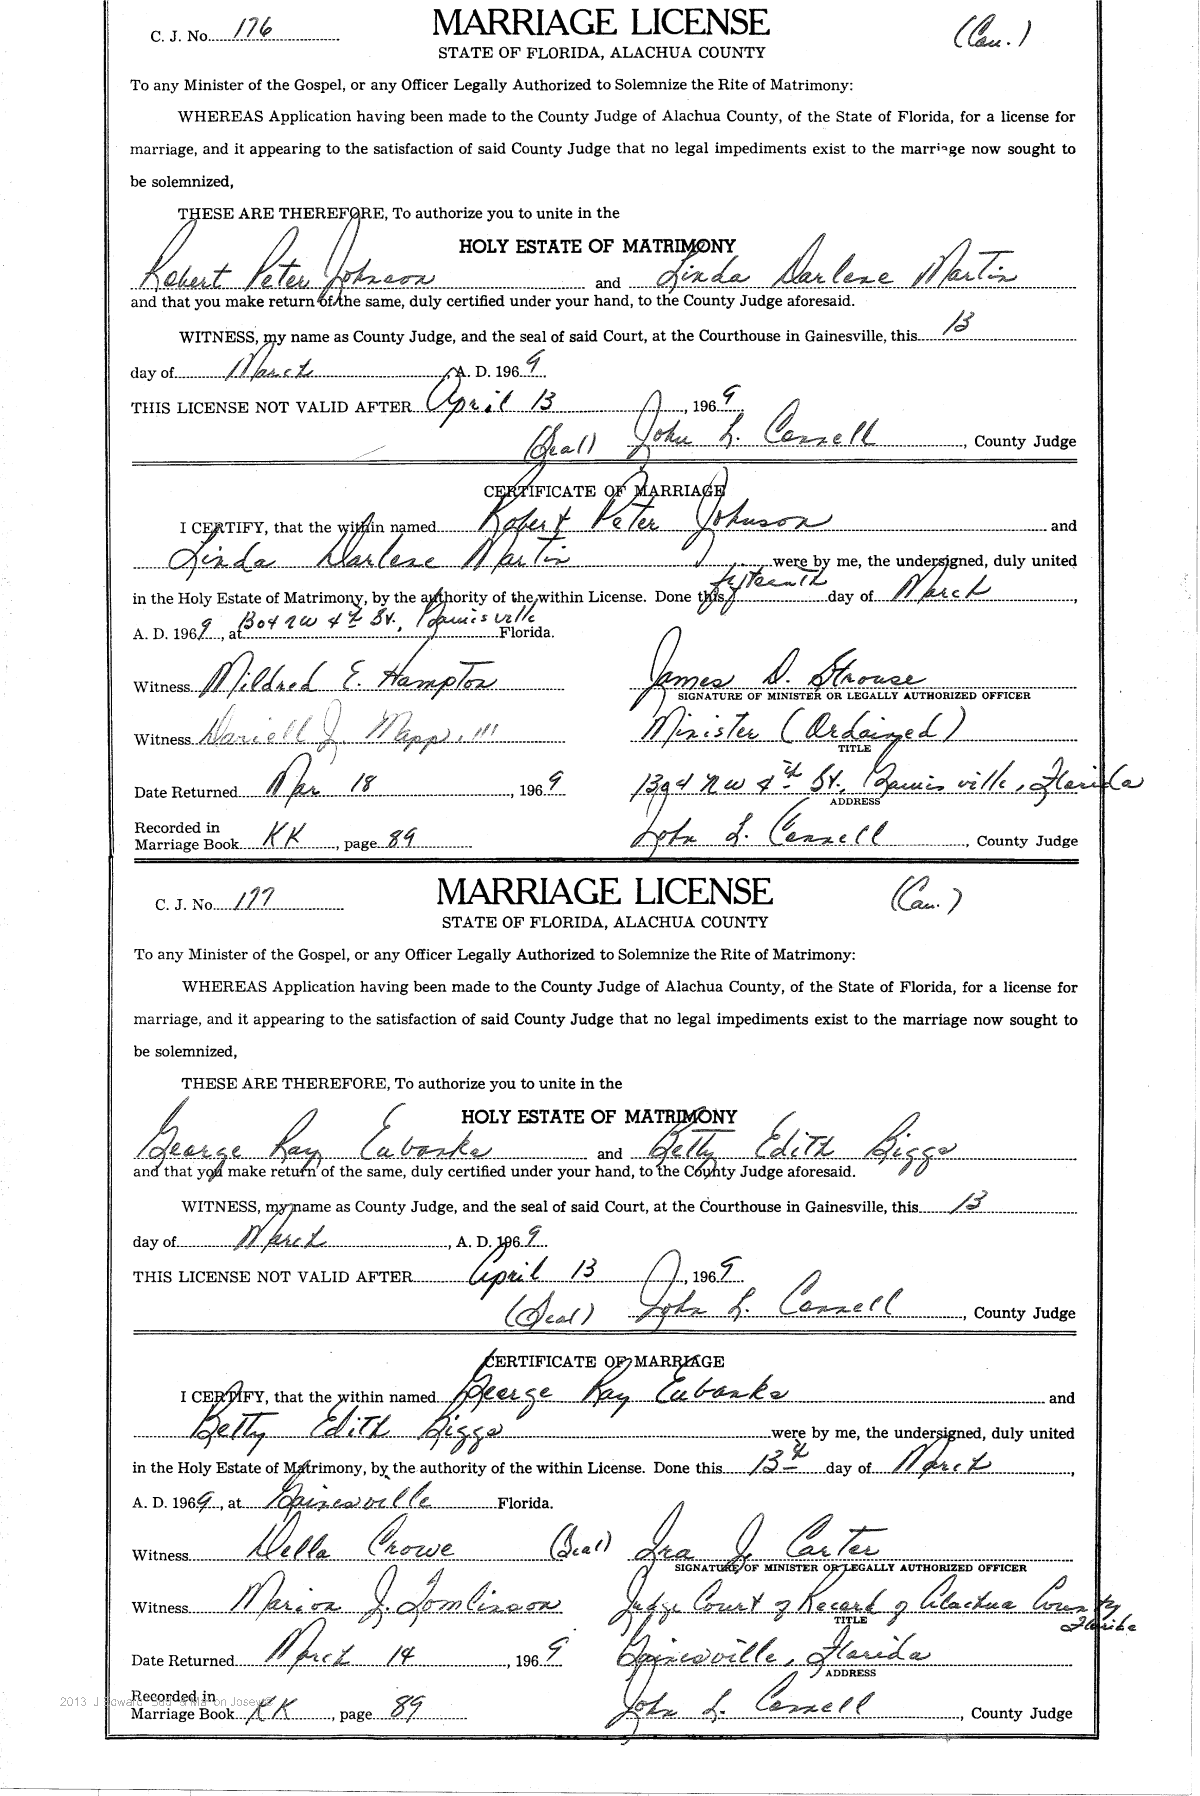 C. J. No. 176 MARRIAGE LICENSE (Cau.)
STATE OF FLORIDA, ALACHUA COUNTY
To any Minister of the Gospel, or any Officer Legally Authorized to Solemnize the Rite of Matrimony:
WHEREAS Application having been made to the County Judge of Alachua County, of the State of Florida, for a license for
marriage, and it appearing to the satisfaction of said County Judge that no legal impediments exist to the marriage now sought to
be solemnized,
THESE ARE THEREFORE, To authorize you to unite in the
HOLY ESTATE OF MATRIMONY
Robert Peter Johnson and Linda Darlene Martin
and that you make return of the same, duly certified under your hand, to the County Judge aforesaid.
WITNESS, my name as County Judge, and the seal of said Court, at the Courthouse in Gainesville, this 13
day of March, A. D. 1969
THIS LICENSE NOT VALID AFTER April 13, 1969
(Seal) John L. Connell, County Judge
CERTIFICATE OF MARRIAGE
I CERTIFY, that the within named Robert Peter Johnson and
Linda Darlene Martin were by me, the undersigned, duly united
in the Holy Estate of Matrimony, by the authority of the within License. Done this fifteenth day of March,
A. D. 1969, at NW 4th St., Florida.
Witness Mildred E. Hampton James D. Strouse
SIGNATURE OF MINISTER OR LEGALLY AUTHORIZED OFFICER
Witness J. Mapp III Minister (Ordained)
TITLE
Date Returned Mar 18, 1969 NW 4th St., Florida
ADDRESS
Recorded in
Marriage Book KK, page 89 John L. Connell, County Judge
C. J. No. 177 MARRIAGE LICENSE (Cau.)
STATE OF FLORIDA, ALACHUA COUNTY
To any Minister of the Gospel, or any Officer Legally Authorized to Solemnize the Rite of Matrimony:
WHEREAS Application having been made to the County Judge of Alachua County, of the State of Florida, for a license for
marriage, and it appearing to the satisfaction of said County Judge that no legal impediments exist to the marriage now sought to
be solemnized,
THESE ARE THEREFORE, To authorize you to unite in the
HOLY ESTATE OF MATRIMONY
George Ray Eubanks and Betty Edith Biggs
and that you make return of the same, duly certified under your hand, to the County Judge aforesaid.
WITNESS, my name as County Judge, and the seal of said Court, at the Courthouse in Gainesville, this 13
day of March, A. D. 1969
THIS LICENSE NOT VALID AFTER April 13, 1969
(Seal) John L. Connell, County Judge
CERTIFICATE OF MARRIAGE
I CERTIFY, that the within named George Ray Eubanks and
Betty Edith Biggs were by me, the undersigned, duly united
in the Holy Estate of Matrimony, by the authority of the within License. Done this 13th day of March,
A. D. 1969, at Gainesville Florida.
Witness Della Crowe (Seal) Ira J. Carter
SIGNATURE OF MINISTER OR LEGALLY AUTHORIZED OFFICER
Witness Marion J. Tomlinson Judge Court of Record of Alachua County
TITLE Florida
Date Returned March 14, 1969 Gainesville, Florida
ADDRESS
Recorded in
Marriage Book KK, page 89 John L. Connell, County Judge